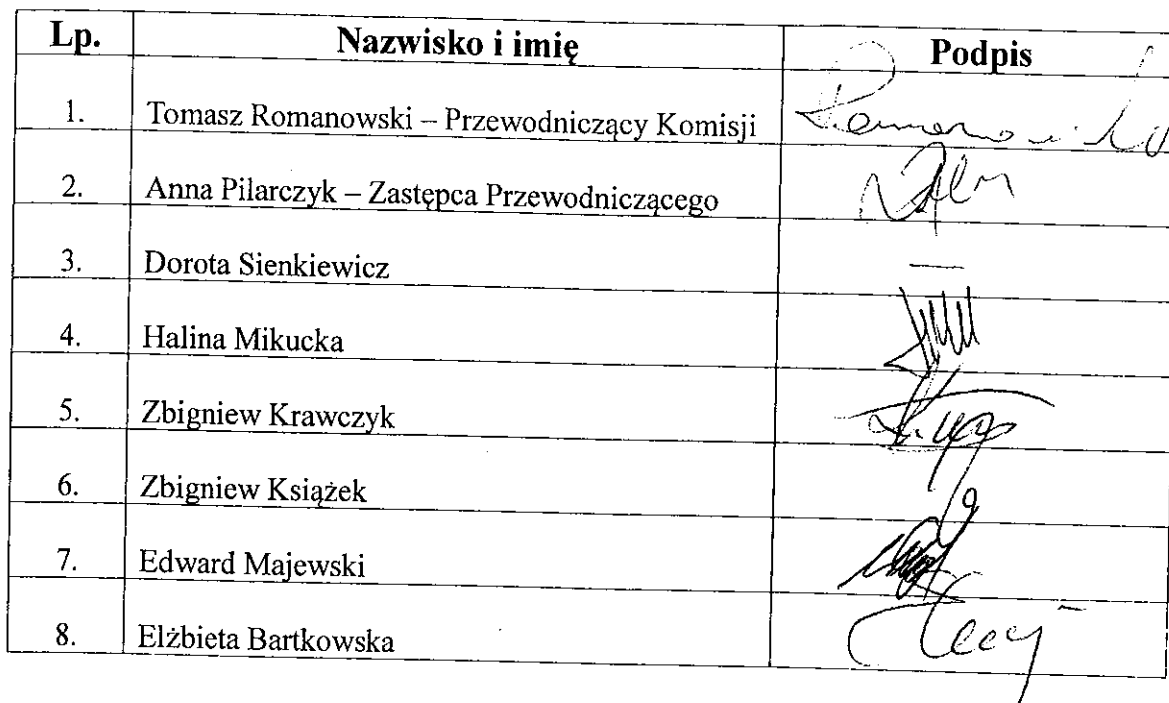 Lp. Nazwisko i imię Podpis
1. Tomasz Romanowski – Przewodniczący Komisji
2. Anna Pilarczyk – Zastępca Przewodniczącego
3. Dorota Sienkiewicz —
4. Halina Mikucka
5. Zbigniew Krawczyk
6. Zbigniew Książek
7. Edward Majewski
8. Elżbieta Bartkowska